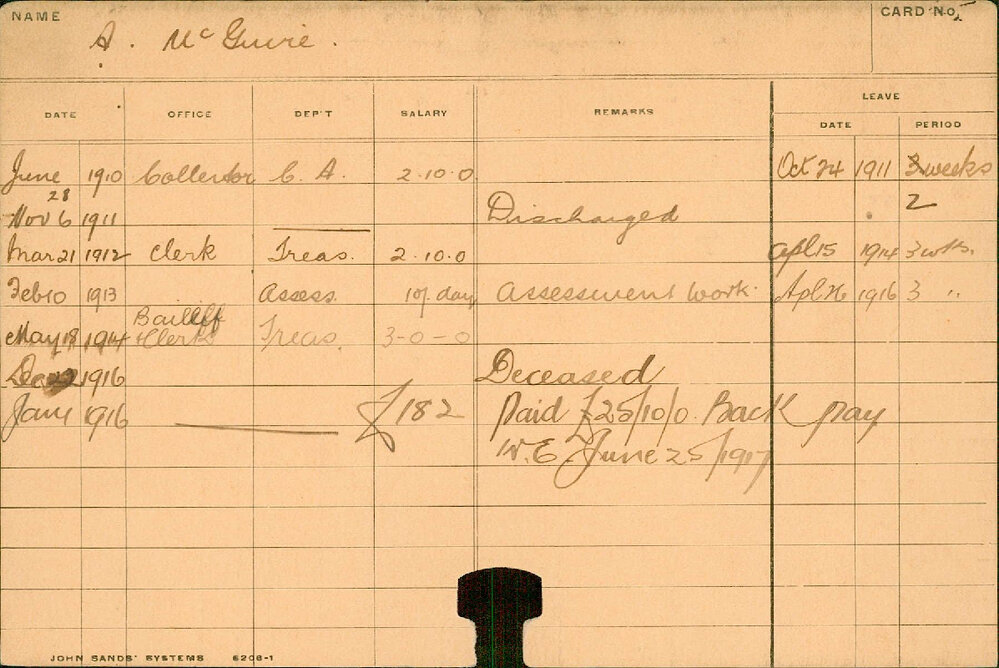 NAME A. McGuire. CARD No.
LEAVE
DATE OFFICE DEP'T SALARY REMARKS DATE PERIOD
June 28 1910 Collector C. A. 2.10.0 Oct 24 1911 3 weeks
Nov 6 1911 Discharged 2
Mar 21 1912 Clerk Treas. 2.10.0 Apl 15 1914 3 wks.
Feb 10 1913 Assess. 10/. day Assessment Work. Apl 26 1916 3 "
May 18 1914 Bailiff + Clerk Treas. 3-0-0
Dec 22 1916 Deceased
Jany 1916 £182 Paid £25/10/0. Back pay
W.E June 25/1917
JOHN SANDS' SYSTEMS 6206-1